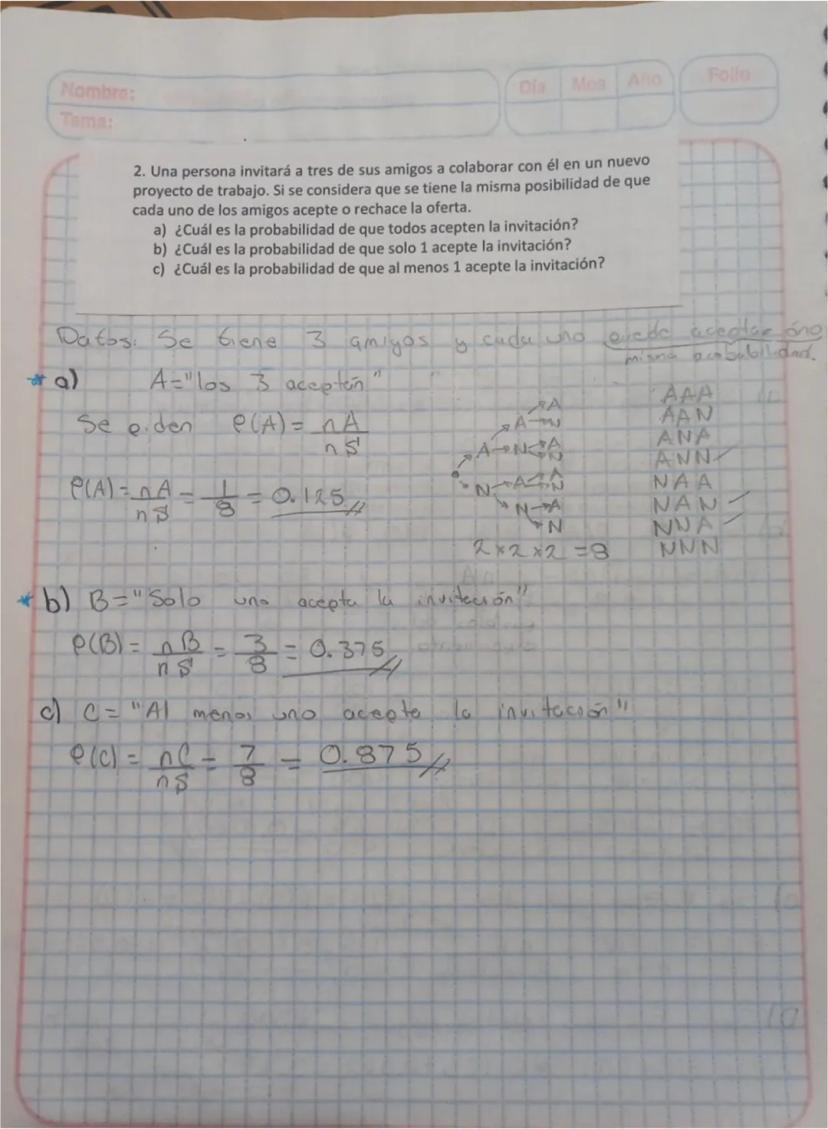 Nombre:
Tema:
Día Mes Año
Folio
2. Una persona invitará a tres de sus amigos a colaborar con él en un nuevo
proyecto de trabajo. Si se considera que se tiene la misma posibilidad de que
cada uno de los amigos acepte o rechace la oferta.
a) ¿Cuál es la probabilidad de que todos acepten la invitación?
b) ¿Cuál es la probabilidad de que solo 1 acepte la invitación?
c) ¿Cuál es la probabilidad de que al menos 1 acepte la invitación?
Datos: Se tiene 3 amigos y cada uno puede aceptar o no
misma probabilidad.
a) A="los 3 acepten"
Se piden P(A)= nA/nS
P(A)= nA/nS = 1/8 = 0.125
A A
A N
A N A
N
N A A
N
N A
N
2x2x2=8
AAA
AAN
ANA
ANN
NAA
NAN
NNA
NNN
b) B="Solo uno acepta la invitación"
P(B)= nB/nS = 3/8 = 0.375
c) C= "Al menos uno acepte la invitación"
P(C)= nC/nS = 7/8 = 0.875